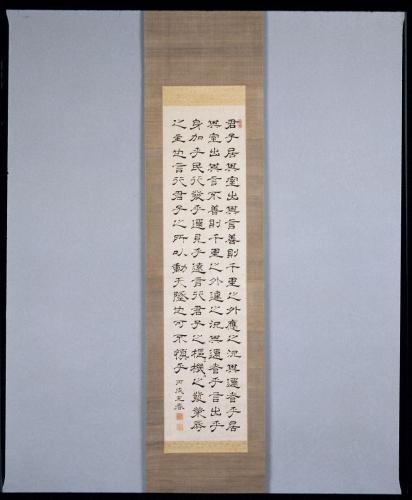 君子居其室出其言善則千里之外應之況其邇者乎居
其室出其言不善則千里之外違之況其邇者乎言出乎
身加乎民行發乎邇見乎遠言行君子之樞機之發榮辱
之主也言行君子之所以動天墬也可不慎乎 丙戌王春